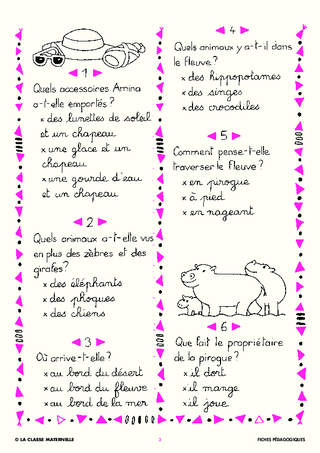 1
Quels accessoires Amina
a-t-elle emportés ?
x des lunettes de soleil
et un chapeau
x une glace et un
chapeau
x une gourde d'eau
et un chapeau
2
Quels animaux a-t-elle vus
en plus des zèbres et des
girafes ?
x des éléphants
x des phoques
x des chiens
3
Où arrive-t-elle ?
x au bord du désert
x au bord du fleuve
x au bord de la mer
4
Quels animaux y a-t-il dans
le fleuve ?
x des hippopotames
x des singes
x des crocodiles
5
Comment pense-t-elle
traverser le fleuve ?
x en pirogue
x à pied
x en nageant
6
Que fait le propriétaire
de la pirogue ?
x il dort
x il mange
x il joue
© LA CLASSE MATERNELLE
3
FICHES PÉDAGOGIQUES